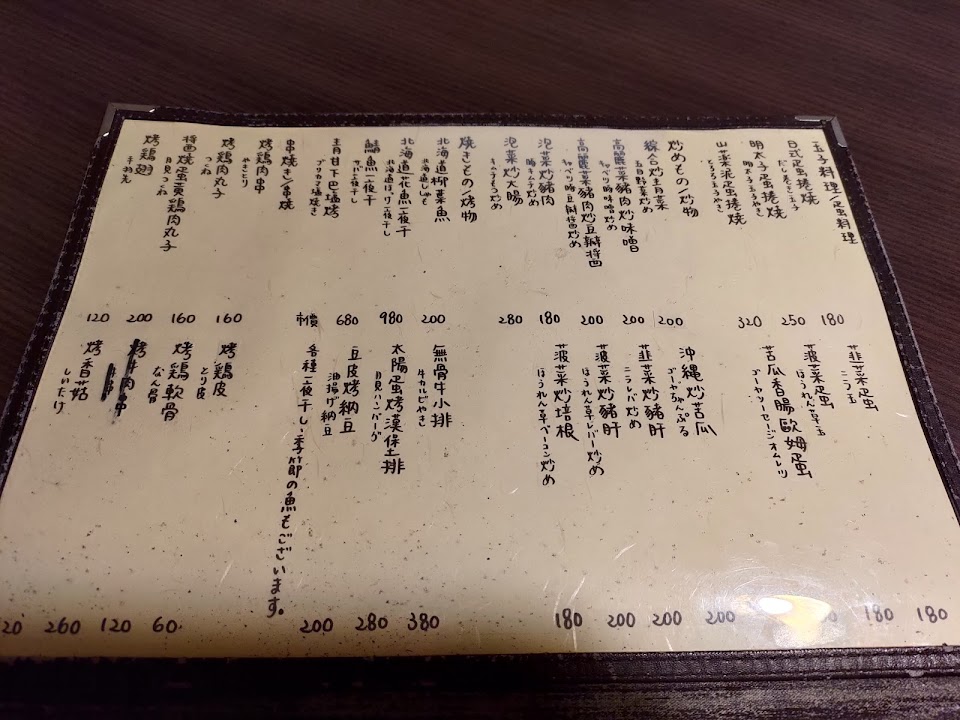 玉子料理/蛋料理
日式蛋捲燒
だしまき玉子
180
明太子蛋捲燒
明太子玉子やき
250
山藥泥蛋捲燒
とろろ玉子やき
320
炒めもの/炒物
綜合炒青菜
五目野菜炒め
200
高麗菜豬肉炒味噌
キャベツ豚味噌炒め
200
高麗菜豬肉炒豆瓣醬
キャベツ豚豆瓣醬炒め
200
泡菜炒豬肉
豚キムチ炒め
180
泡菜炒大腸
キムチもつ炒め
280
焼きもの/烤物
北海道柳葉魚
北海道ししゃも
200
北海道花魚一夜干
北海道ほっけ一夜干し
980
鯖魚一夜干
サバ一夜干し
680
青甘下巴塩烤
ブリカマ塩焼き
時價
串焼き/串燒
烤鶏肉串
やきとり
160
烤鶏肉丸子
つくね
160
醬燒蛋黃鶏肉丸子
月見つくね
200
烤鶏翅
手羽先
120
韮菜蛋
ニラ玉
180
菠菜蛋
ほうれん草玉
180
苦瓜香腸歐姆蛋
ゴーヤソーセージオムレツ
沖縄炒苦瓜
ゴーヤちゃんぷる
200
韮菜炒豬肝
ニラレバ炒め
200
菠菜炒豬肝
ほうれん草レバー炒め
200
菠菜炒培根
ほうれん草ベーコン炒め
180
無骨牛小排
牛カルビやき
380
太陽蛋烤漢堡排
月見ハンバーグ
280
豆皮烤納豆
油揚げ納豆
200
各種一夜干し、季節の魚もございます。
烤鶏皮
とり皮
60
烤鶏軟骨
なん骨
120
烤牛肉串
260
烤香菇
しいたけ
20